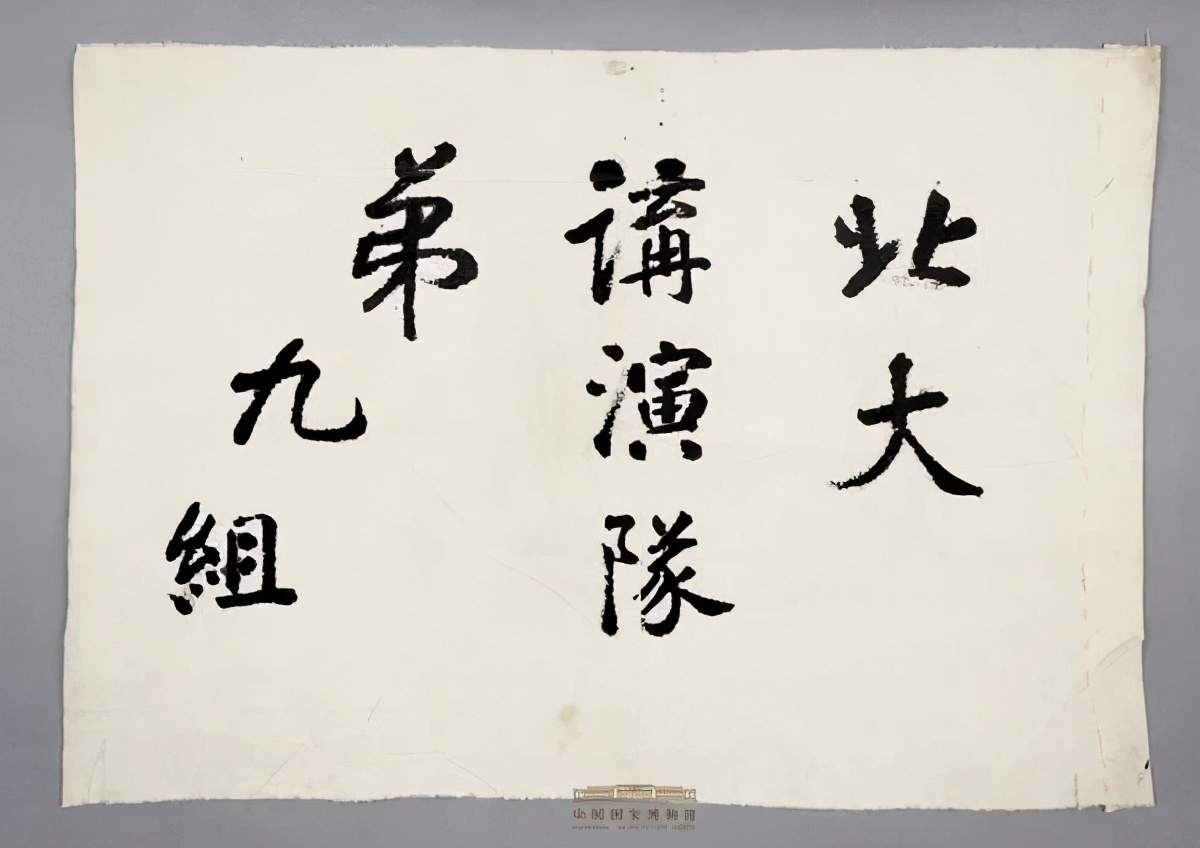 北大
講演隊
第九組
中国国家博物館